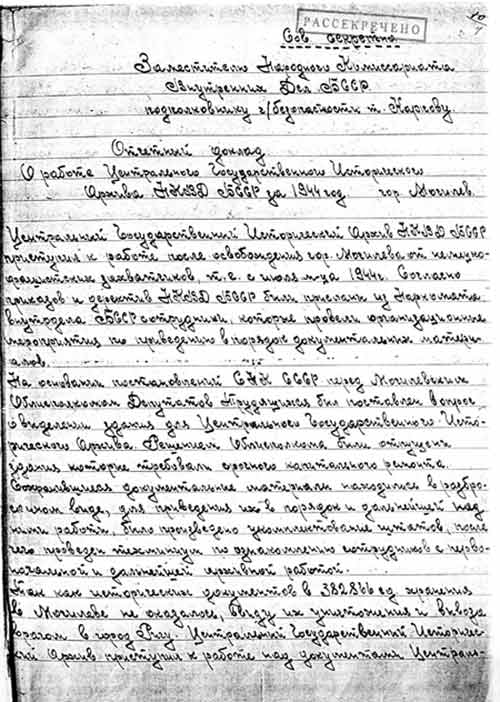 РАССЕКРЕЧЕНО
Сов. секретно
Заместителю Народного Комиссариата
Внутренних Дел БССР
подполковнику г/безопасности т. Каргову.
Отчетный доклад
О работе Центрального Государственного Исторического
Архива НКВД БССР за 1944 год гор. Могилев.
Центральный Государственный Исторический Архив НКВД БССР
приступил к работе после освобождения гор. Могилева от немецко-
фашистских захватчиков, т.е. с июля м-ца 1944г. Согласно
приказов и директив НКВД БССР были присланы из Наркомата
внутдела БССР сотрудники, которые провели организационные
мероприятия по приведению в порядок документальных матери-
алов.
На основании постановлений СНК СССР перед Могилевским
Облисполкомом Депутатов Трудящихся был поставлен вопрос
о выделении здания для Центрального Государственного Исто-
рического Архива. Решением Облисполкома были отпущены
здания которые требовали срочного капитального ремонта.
Сохранившиеся документальные материалы находились в разбро-
санном виде, для приведения их в порядок и дальнейшей над
ними работы, было произведено укомплектование штатов, после
чего проведен техминимум по ознакомлению сотрудников с перво-
начальной и дальнейшей архивной работой.
Так как исторических документов в 382866 ед. хранения
в Могилеве не оказалось, ввиду их уничтожения и вывоза
врагом в город Ригу. Центральный Государственный Историчес-
кий Архив приступил к работе над документами Централь-